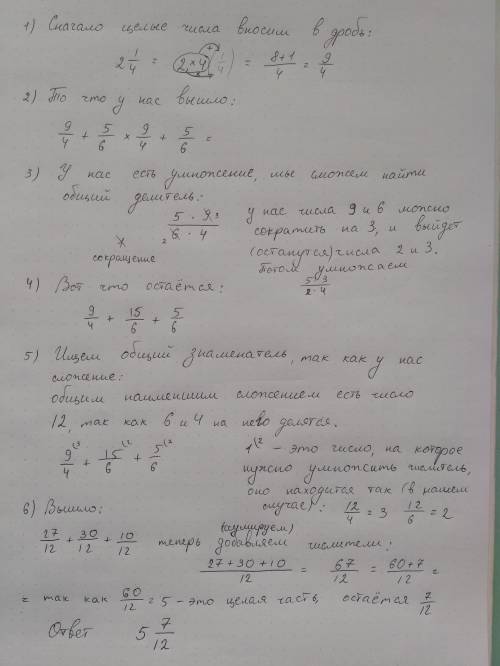 1) Сначало целые числа вносим в дробь:
2 1/4 = 2 × 4 (1/4) = 8+1/4 = 9/4
2) То что у нас вышло:
9/4 + 5/6 × 9/4 + 5/6 =
3) У нас есть умножение, мы сможем найти
общий делитель:
5 · 9 3 / 2 6 · 4
сокращение
у нас числа 9 и 6 можно
сократить на 3, и выйдет
(останутся) числа 2 и 3.
Потом умножаем
5·3/2·4
4) Вот что остаётся:
9/4 + 15/6 + 5/6
5) Ищем общий знаменатель, так как у нас
сложение:
общим наименшим сложением есть число
12, так как 6 и 4 на него делятся.
9/4 \3 + 15/6 \2 + 5/6 \2
1 \2 – это число, на которое
нужно умножить числитель,
оно находится так (в нашем
случае): 12/4 = 3 12/6 = 2
6) Вышло:
27/12 + 30/12 + 10/12 теперь добавляем числители:
27+30+10/12 = 67/12 = 60+7/12 =
= так как 60/12 = 5 – это целая часть, остаётся 7/12
Ответ 5 7/12